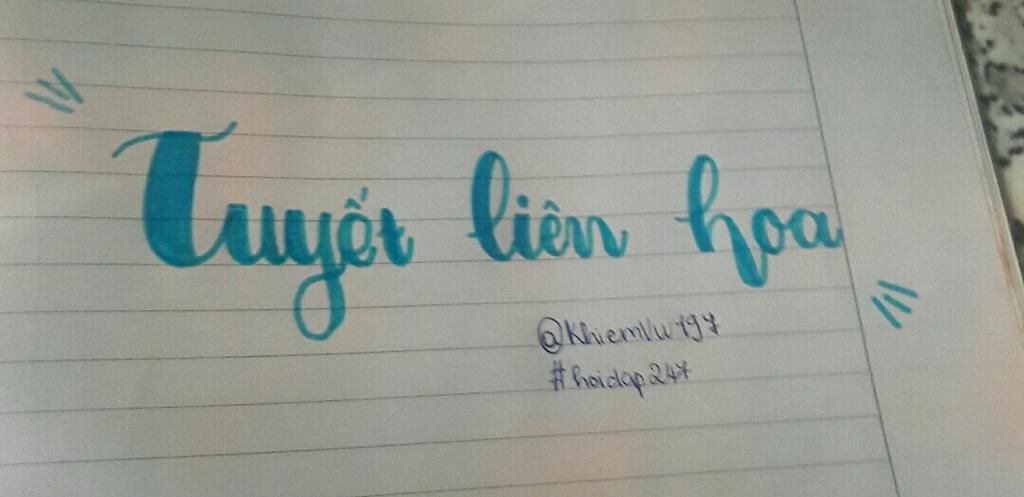 Tuyết liên hoa
@KhiemVu197
#hoidap247